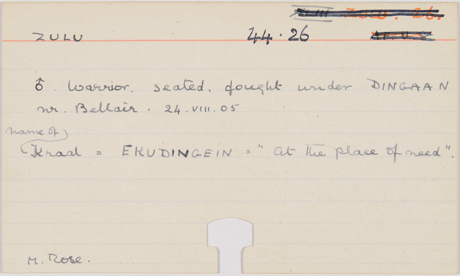 ZULU 44.26
♂. Warrior, seated, fought under DINGAAN
nr. Bellair. 24.VIII.05
name of
Kraal = EKUDINGEIN = "at the place of need".
M. Rose.